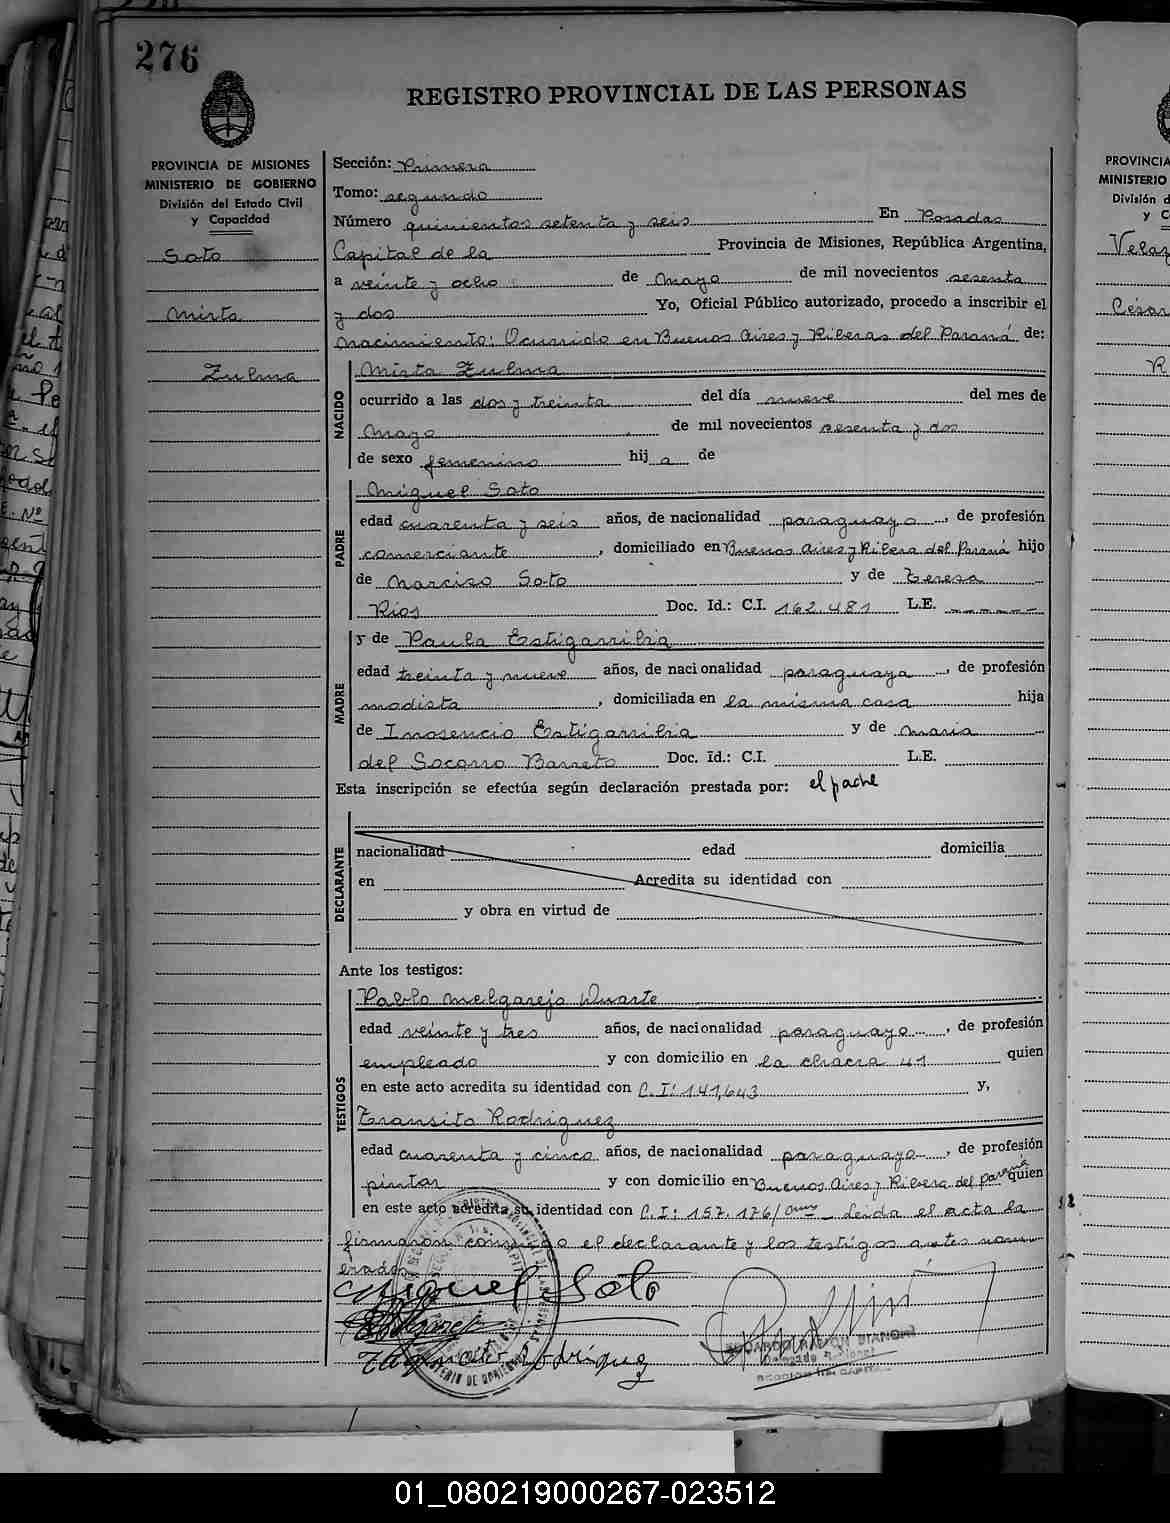 276
REGISTRO PROVINCIAL DE LAS PERSONAS
PROVINCIA DE MISIONES
MINISTERIO DE GOBIERNO
División del Estado Civil
y Capacidad
Soto
Mirta
Zulma
Sección: Primera
Tomo: segundo
Número quinientos setenta y seis En Posadas
Capital de la Provincia de Misiones, República Argentina,
a veinte y ocho de Mayo de mil novecientos sesenta
y dos Yo, Oficial Público autorizado, procedo a inscribir el
nacimiento: Ocurrido en Buenos Aires y Riberas del Paraná de:
NACIDO
Mirta Zulma
ocurrido a las dos y treinta del día nueve del mes de
Mayo de mil novecientos sesenta y dos
de sexo femenino hij a de
PADRE
Miguel Soto
edad cuarenta y seis años, de nacionalidad paraguayo, de profesión
comerciante, domiciliado en Buenos Aires y Ribera del Paraná hijo
de Narciso Soto y de Teresa
Rios Doc. Id.: C.I. 162.481 L.E. ------
MADRE
y de Paula Estigarribia
edad treinta y nueve años, de nacionalidad paraguaya, de profesión
modista, domiciliada en la misma casa hija
de Inosencio Estigarribia y de Maria
del Socorro Barreto Doc. Id.: C.I. L.E.
Esta inscripción se efectúa según declaración prestada por: el padre
DECLARANTE
nacionalidad edad domicilia
en Acredita su identidad con
y obra en virtud de
Ante los testigos:
TESTIGOS
Pablo Melgarejo Duarte
edad veinte y tres años, de nacionalidad paraguayo, de profesión
empleado y con domicilio en la chacra 41 quien
en este acto acredita su identidad con C.I: 141,643 y,
Transito Rodriguez
edad cuarenta y cinco años, de nacionalidad paraguayo, de profesión
pintor y con domicilio en Buenos Aires y Ribera del paraná quien
en este acto acredita su identidad con C.I: 157.176/ Leida el acta la
firmaron conmigo el declarante y los testigos antes nom
brados
Miguel Soto
Rodriguez
BIANCHI
PROVINCIA
MINISTERIO
División d
y C
Velaz
César
R
01_080219000267-023512